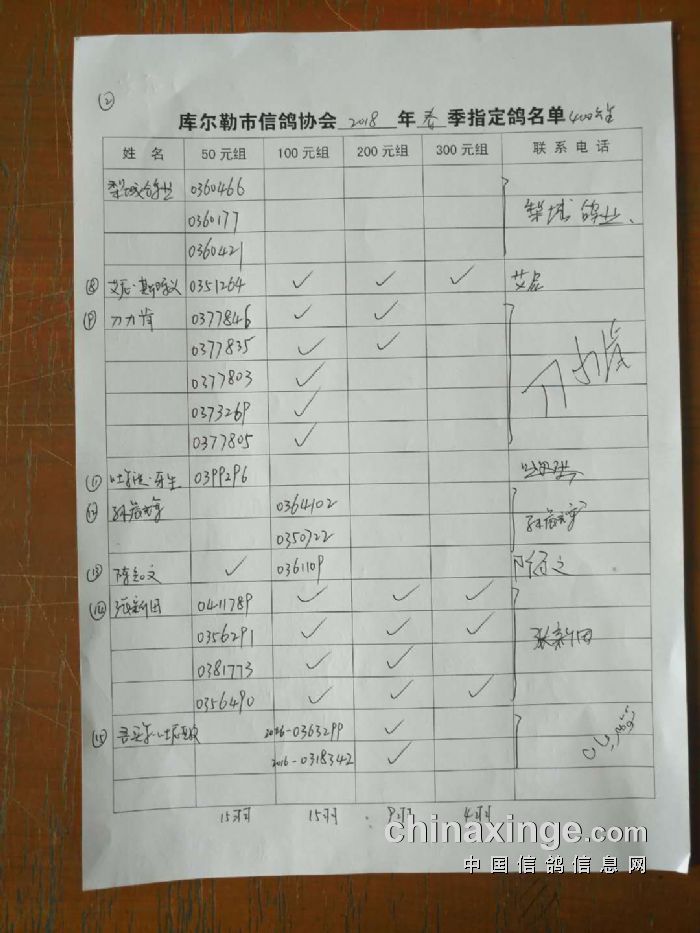 ②
库尔勒市信鸽协会 2018 年 春 季指定鸽名单
姓 名 50元组 100元组 200元组 300元组 联系电话
梨城鸽业 0360466
0360177 梨城鸽业
0360421
0351264 ✓ ✓ ✓ 艾尼
⑨ 0377846 ✓ ✓
0377835 ✓ ✓
0377803 ✓
0373269 ✓
0377805 ✓
⑪ 0399296
⑫ 0364102
0350722
⑬ ✓ 0361109
⑭ 张新田 0411789 ✓ ✓ ✓
0356291 ✓ ✓ ✓ 张新田
0381773 ✓ ✓
0356490 ✓ ✓ ✓
⑮ 2016-0363299 ✓
2016-0318342 ✓
15羽 15羽 9羽 4羽
chinaxinge.com
中国信鸽信息网